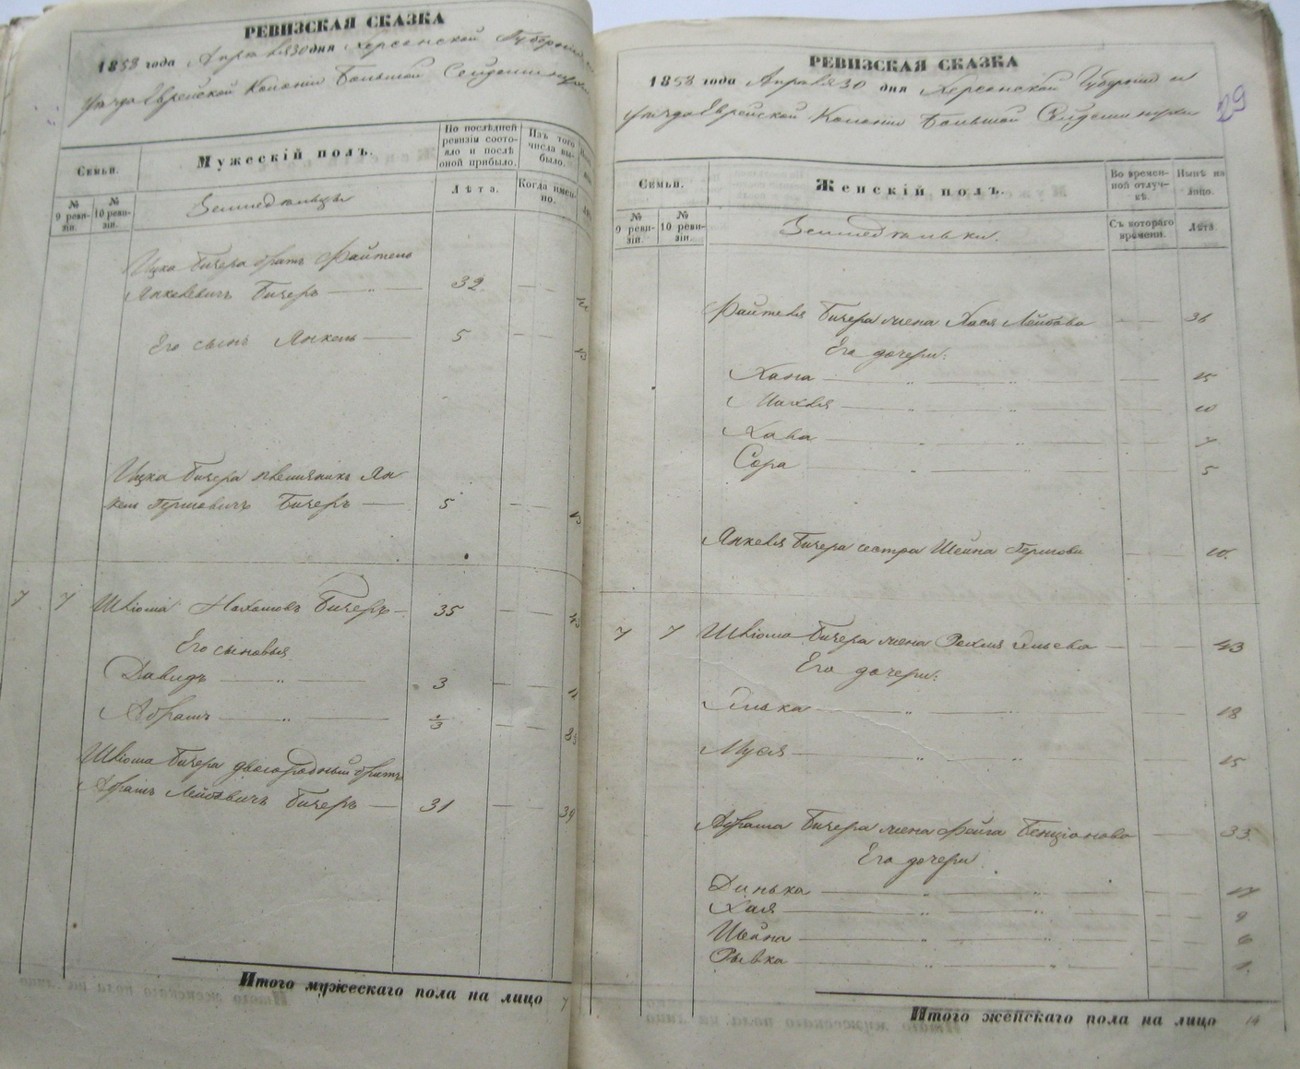 РЕВИЗСКАЯ СКАЗКА
1858 года Апреля 30 дня Херсонской Губернии и
уезда Еврейской Колоніи Большой Сейдеминухи
Семьи.
Мужескій полъ.
По послѣдней ревизіи состояло и послѣ оной прибыло.
Изъ того числа выбыло.
№ 9 ревизіи.
№ 10 ревизіи.
Земледельцы
Лѣта.
Когда именно.
Ицка Бичера братъ Файтель
Янкелевичъ Бичеръ — „ — 32
Его сынъ Янкель — 5
Ицка Бичера племянникъ Ян
кель Гершовичъ Бичеръ — 5
7 7 Шліома Бичеръ — 35
Его сыновья
Давидъ — „ — 3
Абрамъ — „ — 1/3
Шліома Бичера двоюродный братъ
Абрамъ Лейбовичъ Бичеръ — 31 39
Итого мужескаго пола на лицо 7
РЕВИЗСКАЯ СКАЗКА
29
1858 года Апреля 30 дня Херсонской Губерніи и
уезда Еврейской Колоніи Большой Сейдеминухи
Семьи.
Женскій полъ.
Во временной отлучкѣ.
Нынѣ на лицо.
№ 9 ревизіи.
№ 10 ревизіи.
Земледельки.
Съ котораго времени.
Лѣта.
Файтеля Бичера жена Хася Лейбова 36
Его дочери:
Хана — „ — „ — 15
— „ — „ — 10
Хава — „ — „ — 7
Сора — „ — „ — 5
Янкеля Бичера сестра Шейна Гершова
7 7 Шліома Бичера жена 43
Его дочери:
— „ — „ — 18
— „ — „ — 15
Абрама Бичера жена Фейга Бенціонова — 33
Его дочери
Динька — „ — „ —
Хая — „ — „ — 9
Шейна — „ — „ — 6
Рывка — „ — „ — 1
Итого женскаго пола на лицо 14